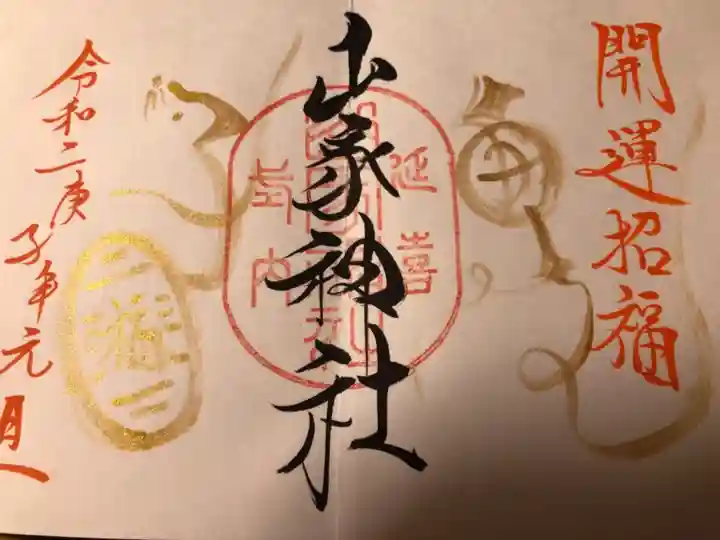 開運招福
山家神社
延喜
式内
令和二庚子年元旦
福